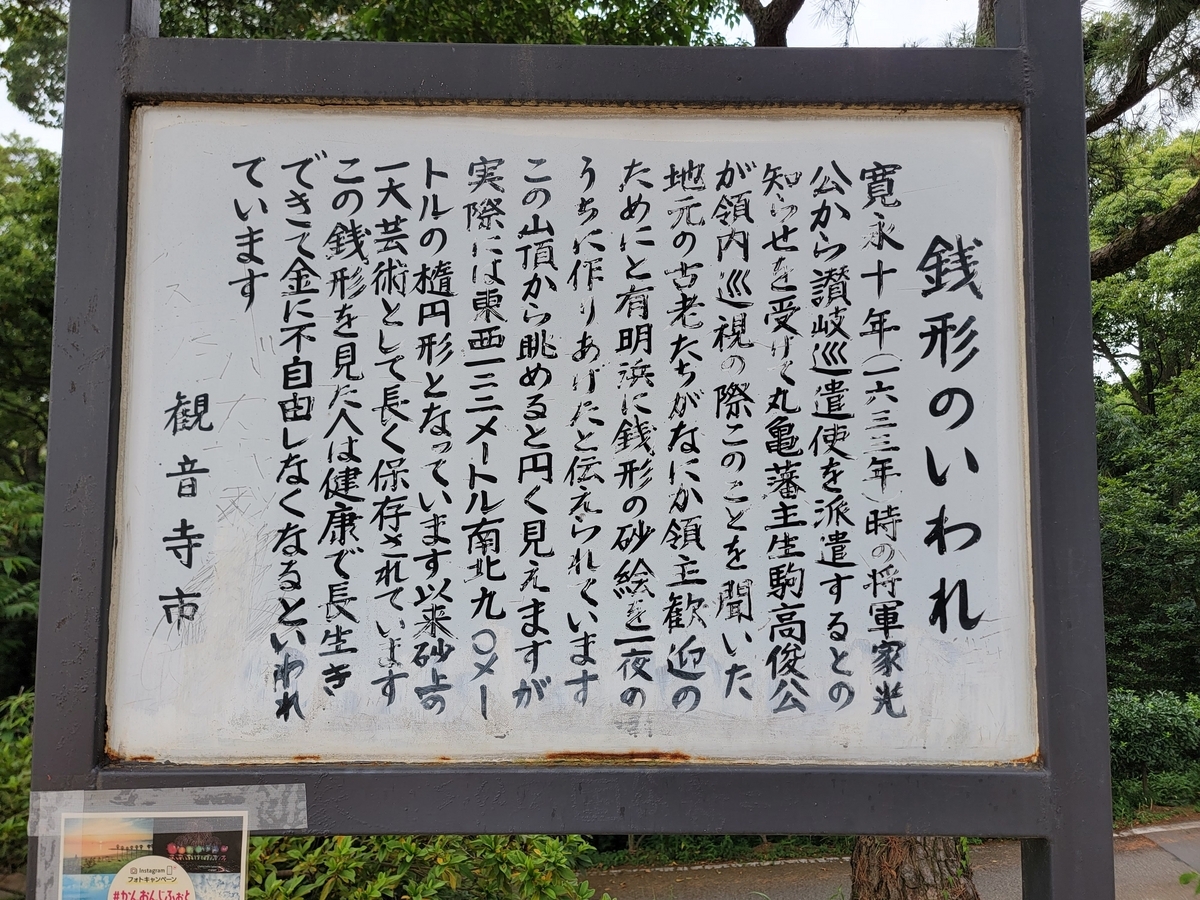 銭形のいわれ
寛永十年(一六三三年)時の将軍家光
公から讃岐巡遣使を派遣するとの
知らせを受けて丸亀藩主生駒高俊公
が領内巡視の際このことを聞いた
地元の古老たちがなにか領主歓迎の
ためにと有明浜に銭形の砂絵を一夜の
うちに作りあげたと伝えられています
この山頂から眺めると円く見えますが
実際には東西一二二メートル南北九〇メー
トルの楕円形となっています以来砂上の
一大芸術として長く保存されています
この銭形を見た人は健康で長生き
できて金に不自由しなくなるといわれ
ています
観音寺市
Instagram
フォトキャンペーン
#かんおんじふぉと